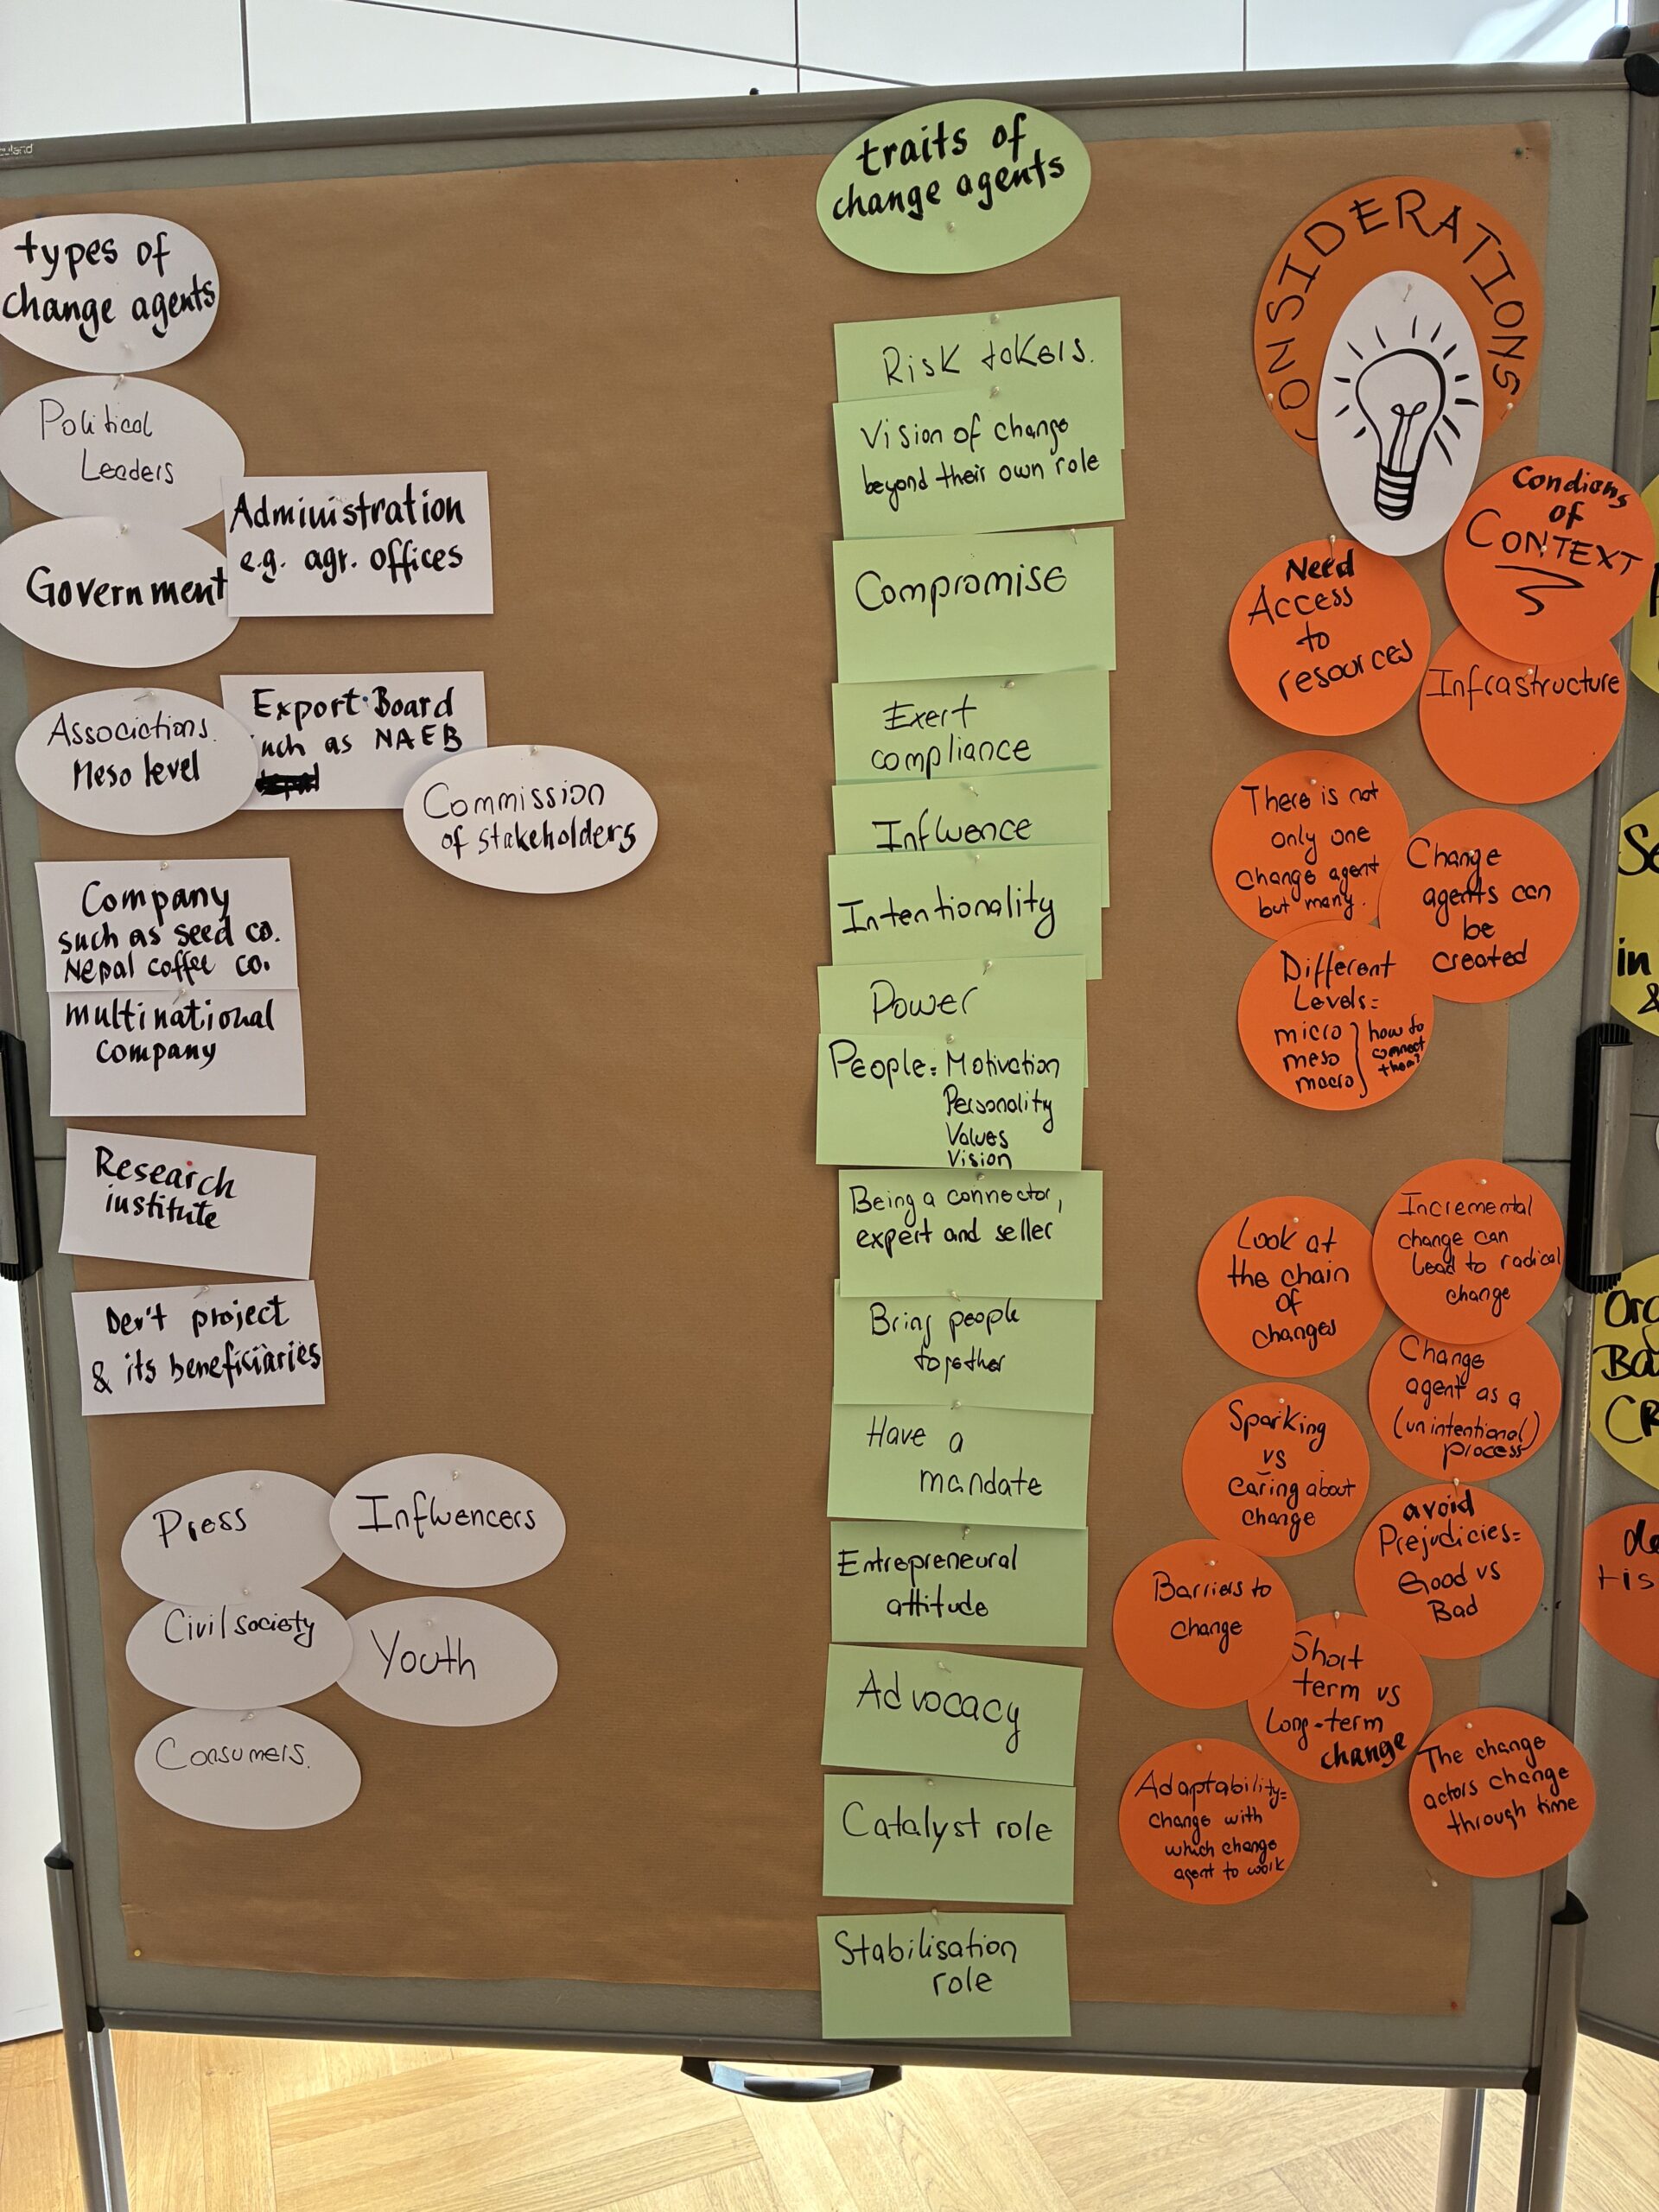 types of
change agents
Political
Leaders
Government
Administration
e.g. agr. offices
Associations.
Meso level
Export Board
such as NAEB
Commission
of stakeholders
Company
such as seed co.
Nepal coffee co.
multinational
company
Research
institute
Dev't project
& its beneficiaries
Press
Influencers
Civil society
Youth
Consumers.
traits of
change agents
Risk takers.
Vision of change
beyond their own role
Compromise
Exert
compliance
Influence
Intentionality
Power
People: Motivation
Personality
Values
Vision
Being a connector,
expert and seller
Bring people
together
Have a
mandate
Entrepreneural
attitude
Advocacy
Catalyst role
Stabilisation
role
CONSIDERATIONS
Condions
of
CONTEXT
Need
Access
to
resources
Infrastructure
There is not
only one
change agent
but many.
Change
agents can
be
created
Different
Levels:
micro
meso
macro
how to
connect
them?
Look at
the chain
of
changes
Incremental
change can
lead to radical
change
Change
agent as a
(unintentional)
process
Sparking
vs
Caring about
change
avoid
Prejudicies:
Good vs
Bad
Barriers to
change
Short
term vs
Long-term
change
Adaptability:
change with
which change
agent to work
The change
actors change
through time
in
&